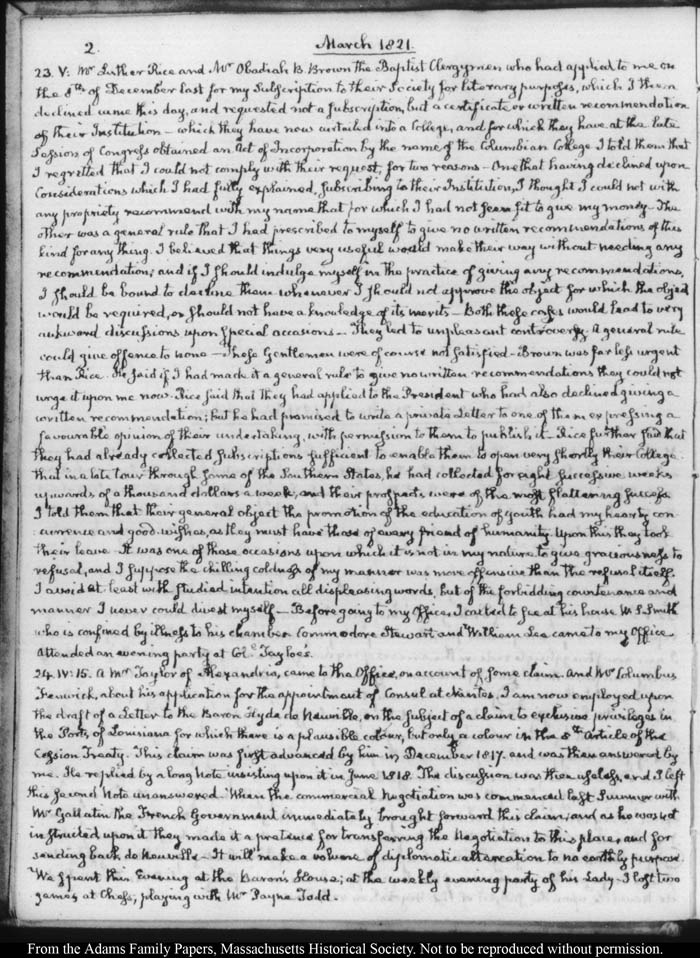 2.
March 1821.
23. V: Mr Luther Rice and Mr Obadiah B. Brown the Baptist Clergymen who had applied to me on
the 8th of December last for my Subscription to their Society for literary purposes, which I then
declined came this day, and requested not a subscription, but a certificate or written recommendation
of their Institution — which they have now into a College, and for which they have at the late
Session of Congress obtained an Act of Incorporation by the name of the Columbian College. I told them that
I regretted that I could not comply with their request, for two reasons — One that having declined upon
Considerations which I had fully explained, subscribing to their Institution, I thought I could not with
any propriety recommend with my name that for which I had not seen fit to give my money — The
other was a general rule that I had prescribed to myself to give no written recommendations of this
kind for any thing. I believed that things very useful would make their way without needing any
recommendation; and if I should indulge myself in the practice of giving any recommendations,
I should be bound to decline them whenever I should not approve the object for which the
would be required, or should not have a knowledge of its merits — Both these cases would lead to very
aukward discussions upon special occasions — They led to unpleasant controversy. A general rule
could give offence to none — These Gentlemen were of course not satisfied — Brown was far less urgent
than Rice. He said if I had made it a general rule to give no written recommendations they could not
urge it upon me now. Rice said that they had applied to the President who had also declined giving a
written recommendation; but he had promised to write a private Letter to one of them expressing a
favourable opinion of their undertaking, with permission to them to publish it — Rice further said that
they had already collected subscriptions sufficient to enable them to open very shortly their College.
that in a late tour through some of the Southern States, he had collected for eight successive weeks
upwards of a thousand dollars a week, and their prospects were of the most flattering success
I told them that their general object the promotion of the education of youth had my hearty con
currence and good wishes, as they must have those of every friend of humanity. Upon this they took
their leave. It was one of those occasions upon which it is not in my nature to give graciousness to
refusal, and I suppose the chilling coldness of my manner was more offensive than the refusal itself.
I avoid at least with studied intention all displeasing words, but of the forbidding countenance and
manner I never could divest myself — Before going to my Office, I called to see at his house W. S. Smith
who is confined by illness to his chamber. Commodore Stewart and William Lee came to my Office
Attended an evening party at Coll Tayloe's.
24. IV: 15. A Mr Taylor of Alexandria, came to the Office, on account of some claim. And Mr Columbus
Fenwick, about his application for the appointment of Consul at Nantes. I am now employed upon
the draft of a Letter to the Baron Hyde de Neuville, on the subject of a claim to exclusive privileges in
the Ports of Louisiana for which there is a plausible colour, but only a colour in the 8th Article of the
Cession Treaty. This claim was first advanced by him in December 1817. and was then answered by
me. He replied by a long Note insisting upon it in June 1818. The discussion was then useless, and I left
this second Note unanswered. When the commercial Negotiation was commenced last Summer with
Mr Gallatin the French Government immediately brought forward this claim; and as he was not
instructed upon it they made it a pretence for transferring the Negotiation to this place, and for
sending back de Neuville — It will make a volume of diplomatic altercation to no earthly purpose.
We spent this Evening at the Baron's House; at the weekly evening party of his Lady. I lost two
games at Chess, playing with Mr Payne Todd.
From the Adams Family Papers, Massachusetts Historical Society. Not to be reproduced without permission.